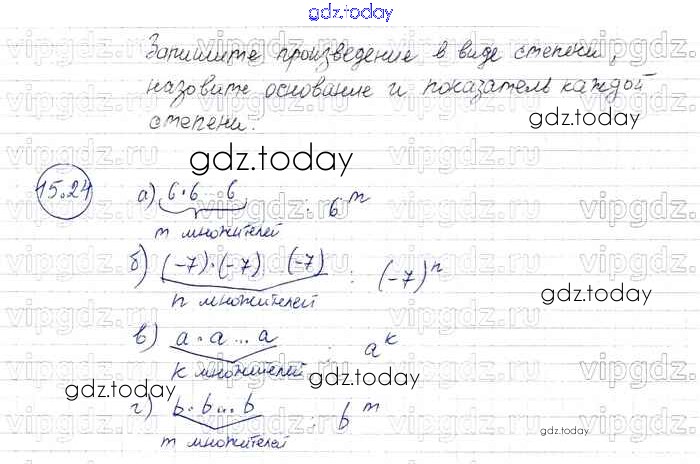 gdz.today
Запишите произведение в виде степени,
назовите основание и показатель каждой
степени.
gdz.today
gdz.today
15.24 а) 6·6...6 : 6^m
m множителей
б) (-7)·(-7) (-7) : (-7)^n
n множителей
gdz.today
в) a·a...a : a^k
k множителей
gdz.today
gdz.today
г) b·b...b : b^m
m множителей
gdz.today